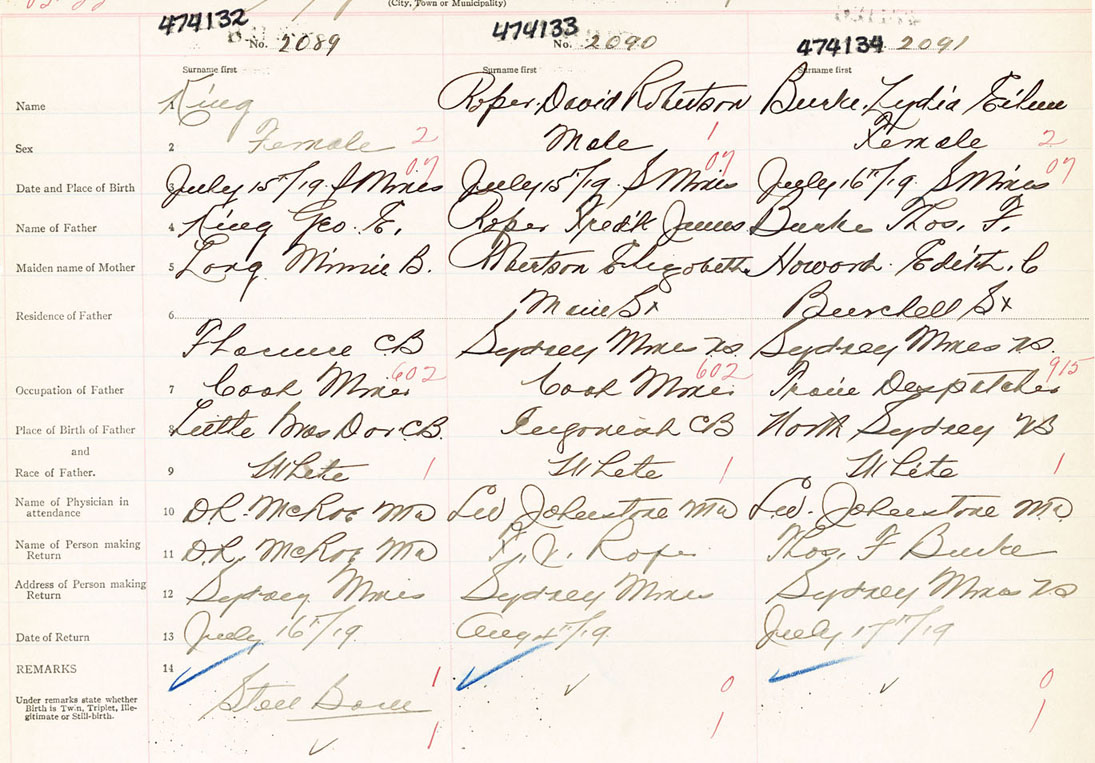 (City, Town or Municipality)
474132 474133 474134
No. 2089 No. 2090 2091
Surname first Surname first Surname first
Name 1 King Roper, David Robertson Burke, Lydia Eileen
Sex 2 Female 2 Male 1 Female 2
07 07 07
Date and Place of Birth 3 July 15"/19. S Mines July 15"/19. S Mines July 16"/19. S Mines
Name of Father 4 King Geo. E. Roper Fred'k James Burke Thos. F.
Maiden name of Mother 5 Long Minnie B. Robertson Elizabeth Howard. Edith. C
Residence of Father 6 Main St Burchell St
Florence CB Sydney Mines NS. Sydney Mines NS.
602 602 915
Occupation of Father 7 Coal Miner Coal Miner Train Despatcher
Place of Birth of Father 8 Little Bras Dor CB. Ingonish CB North Sydney NS
and
Race of Father. 9 White 1 White 1 White 1
Name of Physician in
attendance 10 D.R. McRae MD Johnstone MD Johnstone MD
Name of Person making
Return 11 D.R. McRae MD F. J. Roper Thos. F Burke
Address of Person making
Return 12 Sydney Mines Sydney Mines Sydney Mines NS
Date of Return 13 July 16"/19. Aug 4"/19. July 17"/19
REMARKS 14
1 0 0
Under remarks state whether
Birth is Twin, Triplet, Ille-
gitimate or Still-birth. Still Born
1 1 1